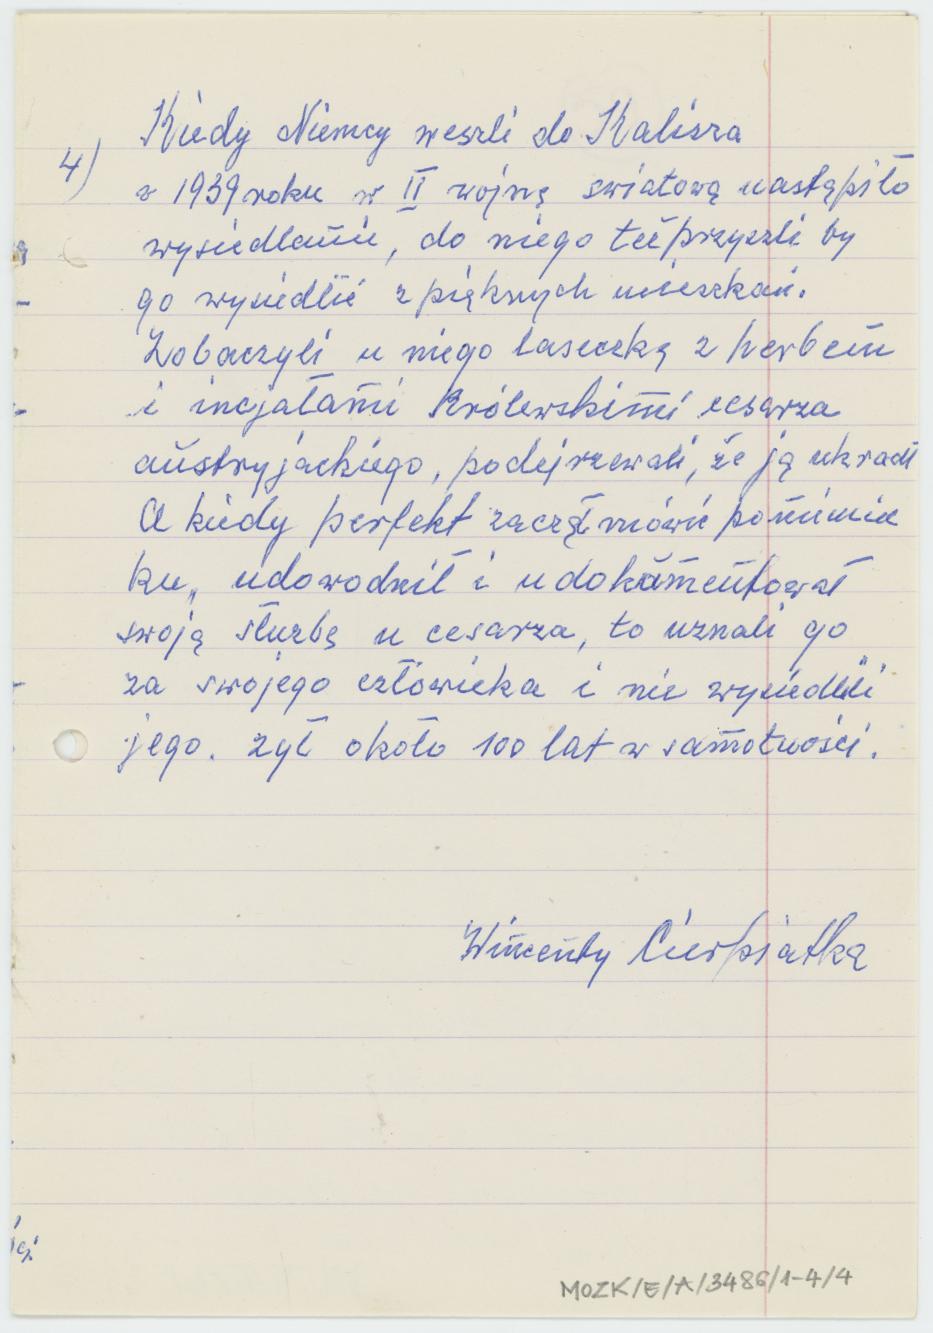 Kiedy Niemcy weszli do Kalisza
4)
w 1939 roku w II wojnę swiatową nastąpiło
wysiedlanie, do niego też przyszli by
go wysiedlić z pięknych mieszkań.
Zobaczyli u niego laseczkę z herbem
i incjałami Królewskimi cesarza
austryjackiego, podejrzewali, że ją ukradł
A kiedy perfekt zaczął mówić poniemiec
ku, udowodnił i udokumentował
swoją służbę u cesarza, to uznali go
za swojego człowieka i nie wysiedlili
jego. żył około 100 lat w samotności.
Wincenty Cierpiatka
MOZK/E/A/3486/1-4/4